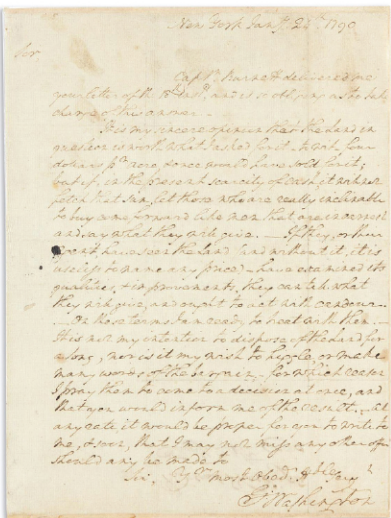 New York Jany. 23d. 1790
Sir
Captn. Barne delivered me
your letter of the 18th Inst. and is so obliging as to take
charge of this answer.
It is my sincere opinion that the land in
question is worth what I asked for it. To wit, four
dollars pr. acre once would have sold for it;
but if, in the present scarcity of cash, it will not
fetch that sum, let those who are really inclinable
to buy come forward like men that are in earnest
and say what they will give. — If they, or their
agent, have seen the land (and without it, it is
useless to name any price) & have examined its
qualities, & improvements, they can tell what
they will give, and ought to act with candour.
On those terms I am ready to treat with them.
It is not my intention to dispose of the land for
a song, nor is it my wish to higgle, or make
many words of the bargain — for which
I pray them to come to a decision at once, and
that you would inform me of the result. At
any rate it would be proper for you to write to
me, & soon, that I may not miss any other offer
should any be made to
Sir, Yr. most Obedt. Hble Servt
Go Washington